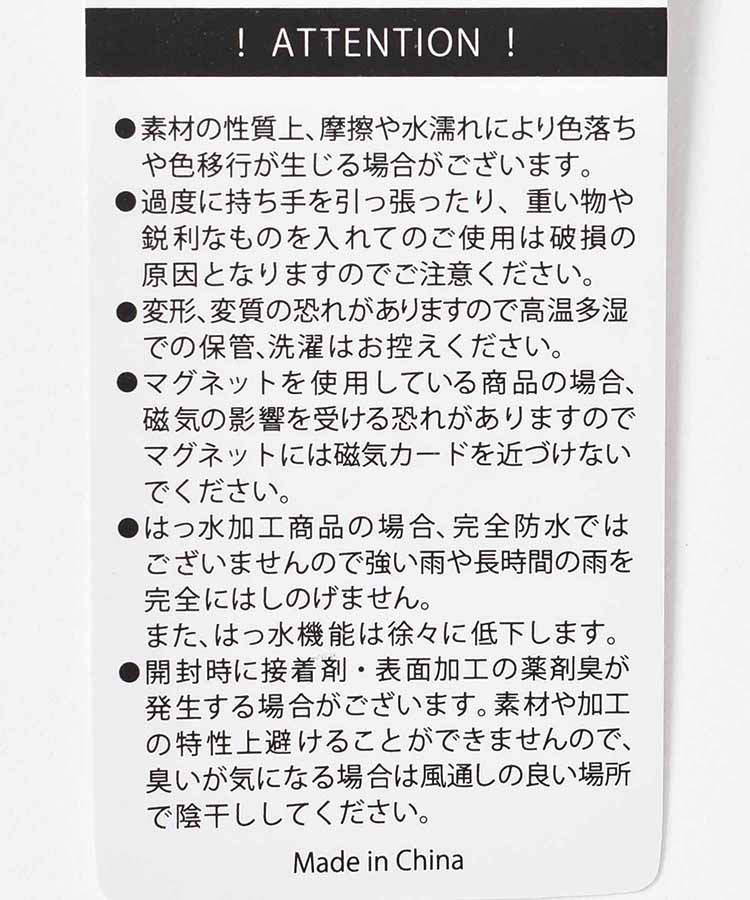 ! ATTENTION !
●素材の性質上、摩擦や水濡れにより色落ち
や色移行が生じる場合がございます。
●過度に持ち手を引っ張ったり、重い物や
鋭利なものを入れてのご使用は破損の
原因となりますのでご注意ください。
●変形、変質の恐れがありますので高温多湿
での保管、洗濯はお控えください。
●マグネットを使用している商品の場合、
磁気の影響を受ける恐れがありますので
マグネットには磁気カードを近づけない
でください。
●はっ水加工商品の場合、完全防水では
ございませんので強い雨や長時間の雨を
完全にはしのげません。
また、はっ水機能は徐々に低下します。
●開封時に接着剤・表面加工の薬剤臭が
発生する場合がございます。素材や加工
の特性上避けることができませんので、
臭いが気になる場合は風通しの良い場所
で陰干ししてください。
Made in China